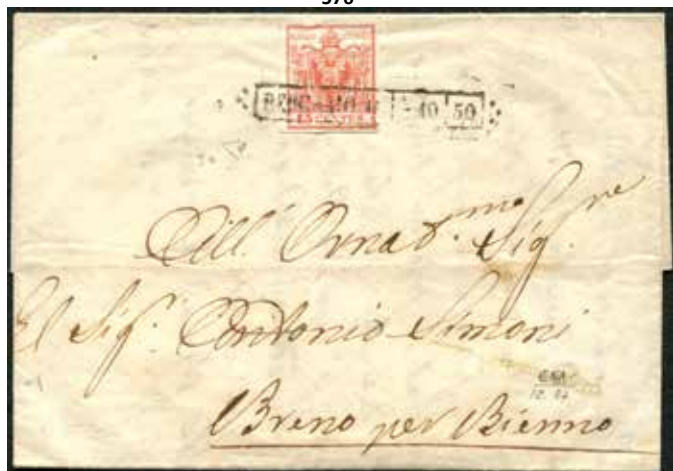 BERGAMO
10 50
15 CENTES
All' Ornat.mo Sig.re
Il Sig.r Antonio Simoni
Breno per Bienno